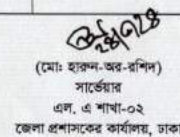 (মোঃ হারুন-অর-রশিদ)
সার্ভেয়ার
এল, এ শাখা-০২
জেলা প্রশাসকের কার্যালয়, ঢাকা